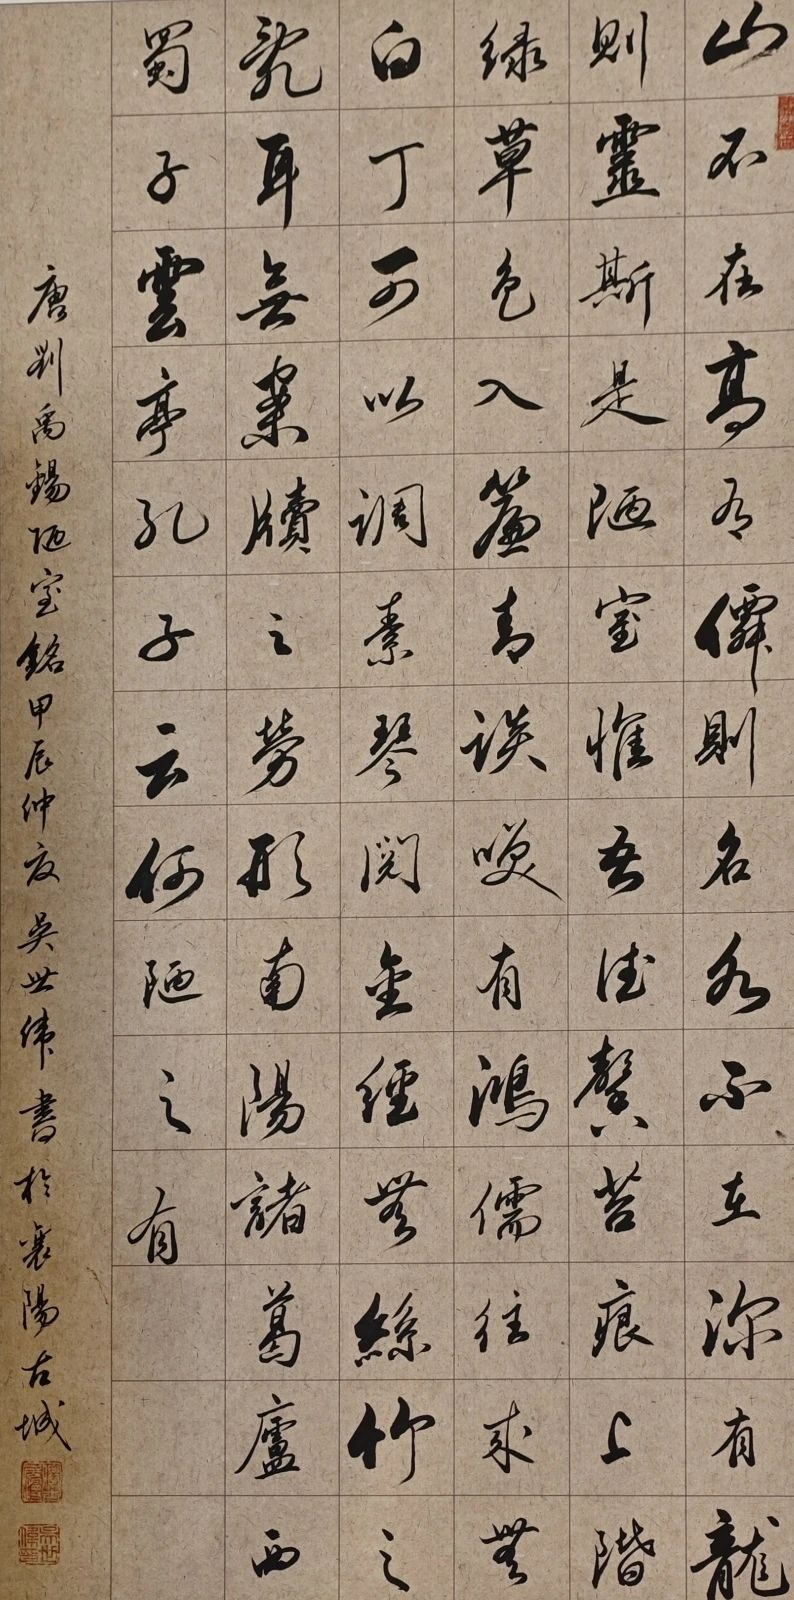 山不在高有僊則名水不在深有龍
則靈斯是陋室惟吾德馨苔痕上階
緑草色入簾青談咲有鴻儒往来無
白丁可以調素琴閱金經無絲竹之
亂耳無案牘之勞形南陽諸葛廬西
蜀子雲亭孔子云何陋之有
唐劉禹錫陋室銘甲辰仲夏吴世伟書於襄陽古城